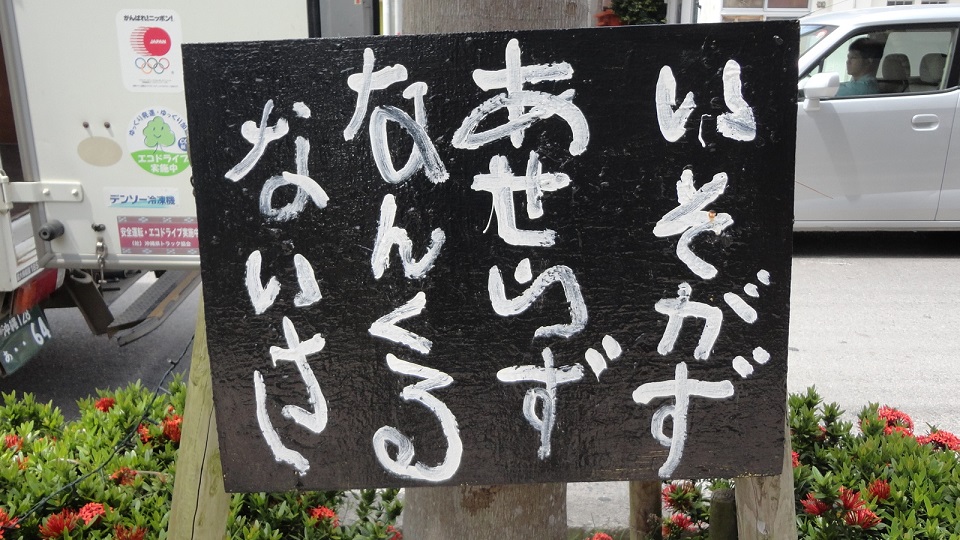 いそがず
あせらず
なんくる
ないさー
がんばれ!ニッポン!
JAPAN
エコドライブ
実施中
デンソー冷凍機
安全運転・エコドライブ実施中
(社)沖縄県トラック協会
あ ・・64